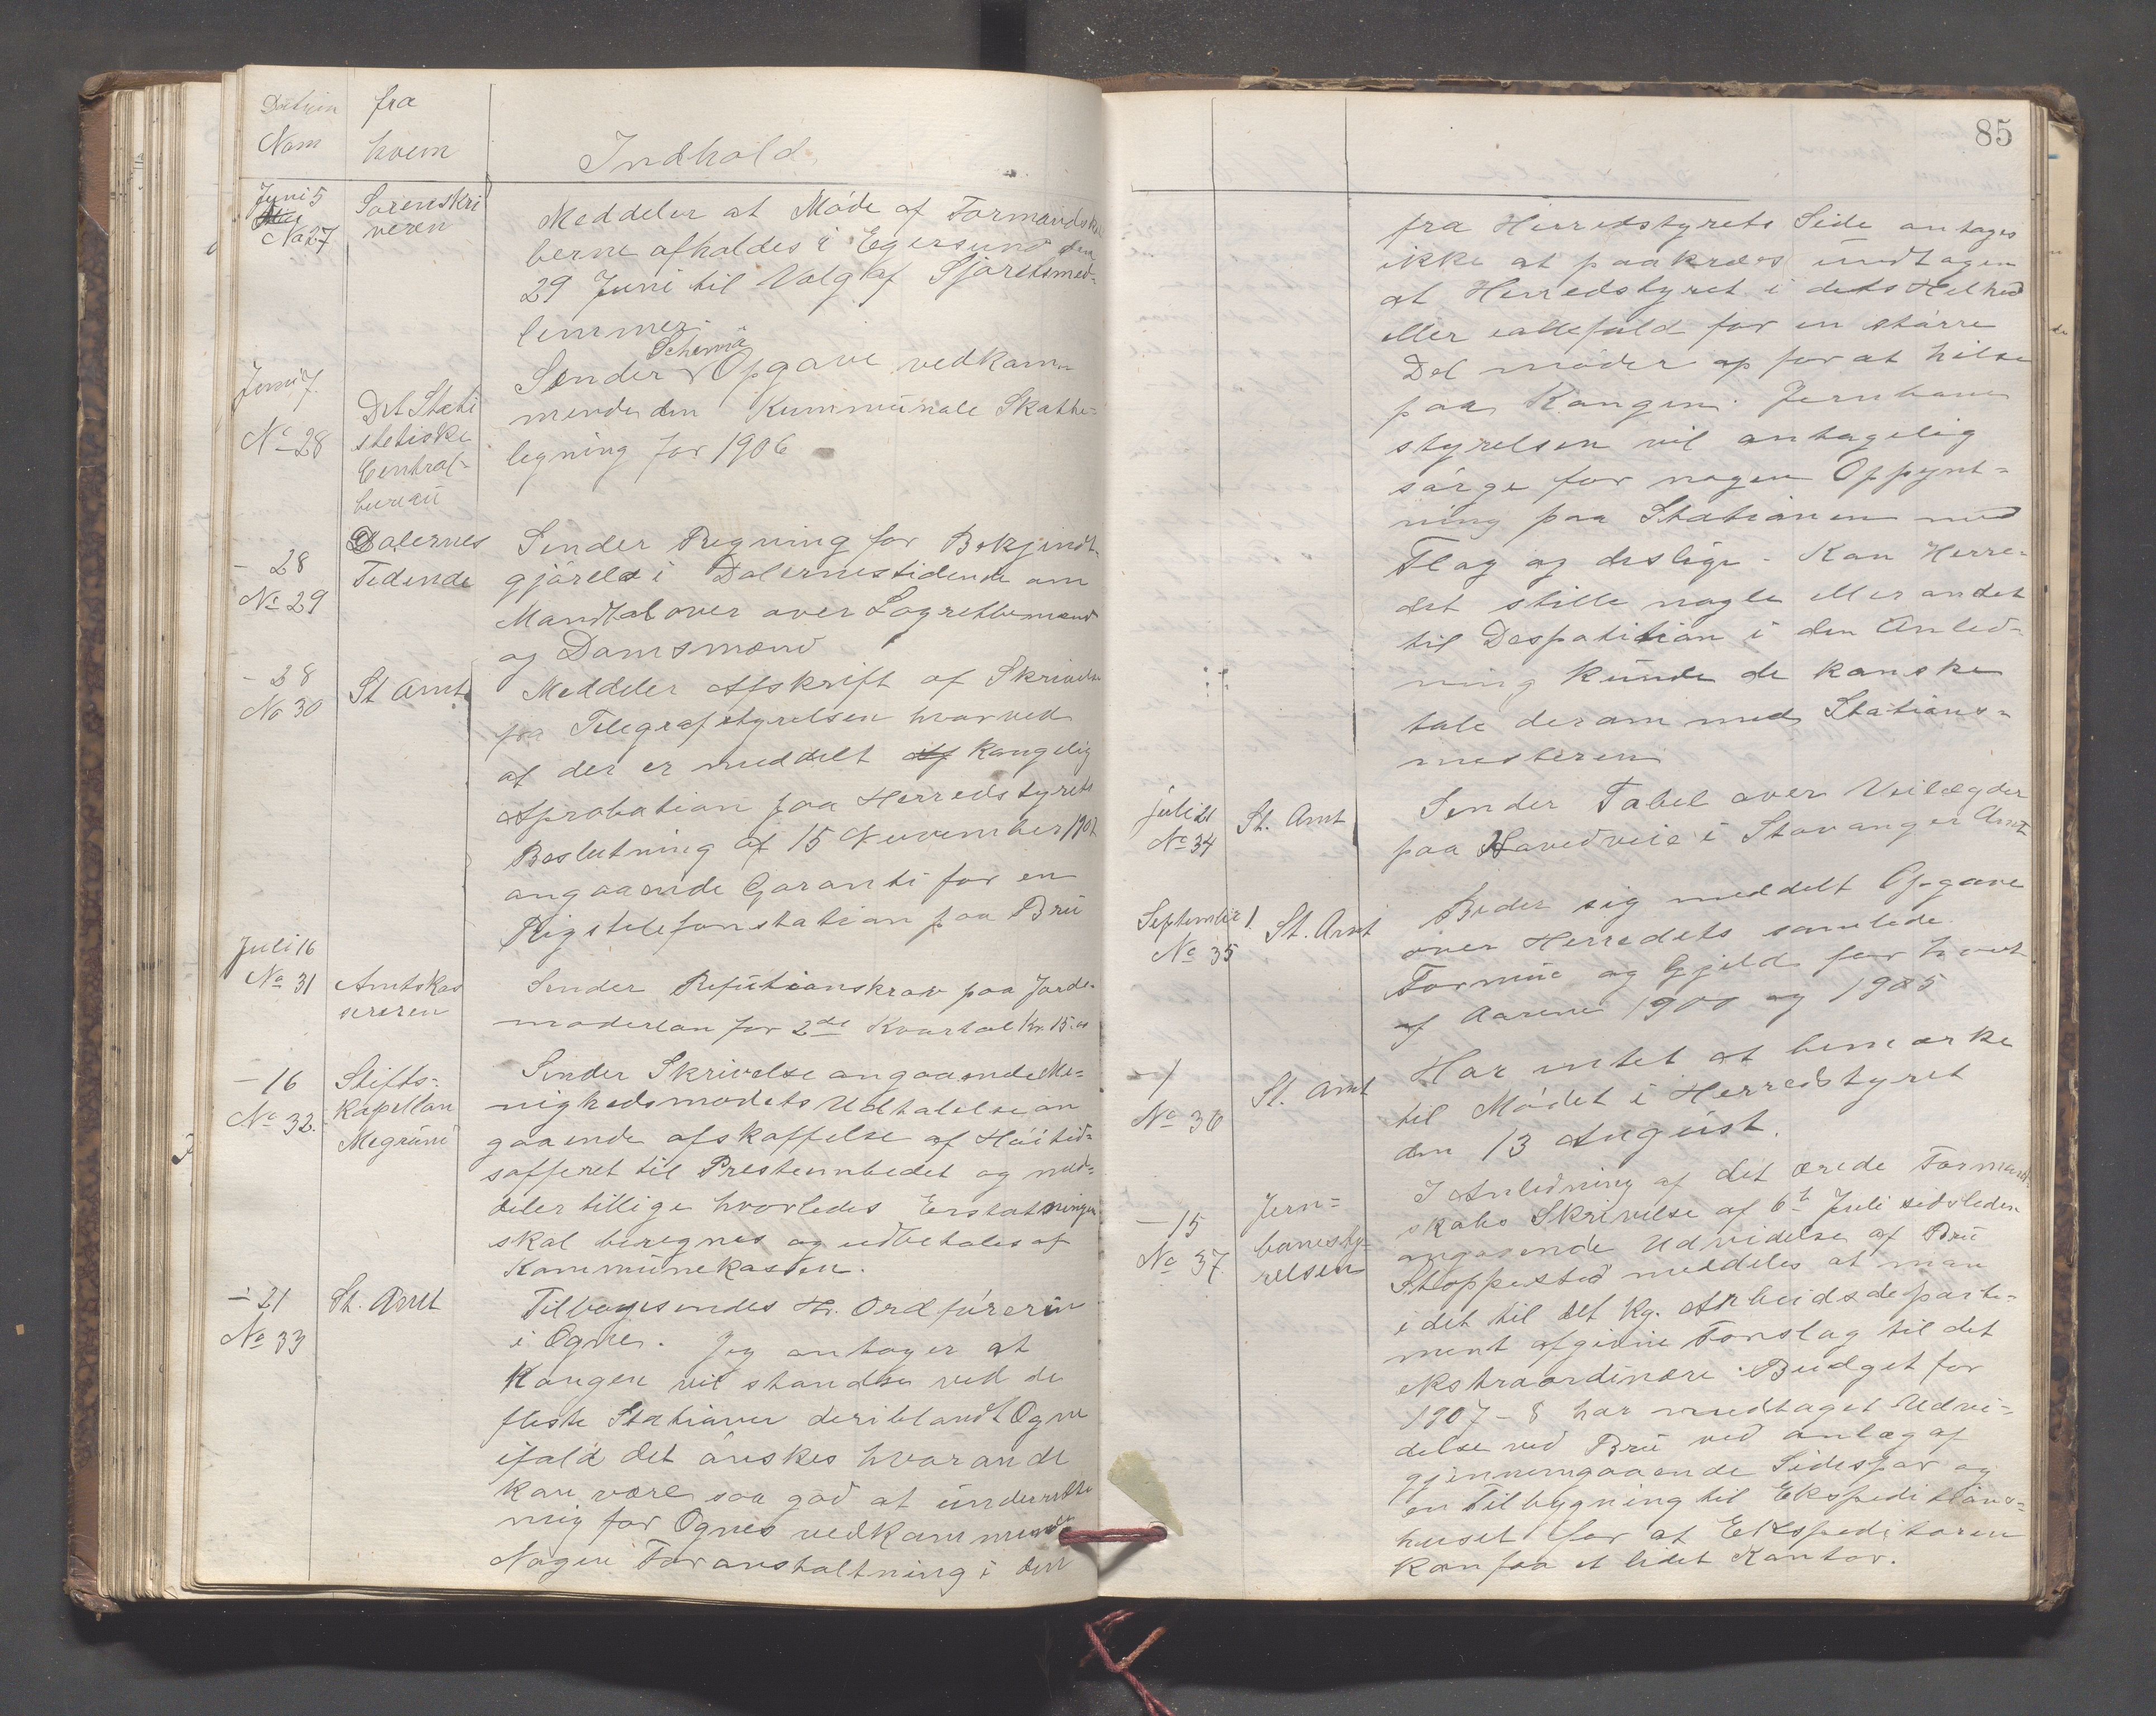 Datum fra
Nom hvem Indhold
Juni 5 Sorenskri
No 27 veren
Meddeler at Møde af Formandska
berne afholdes i Egersund den
29 Juni til Valg af Sjøretsmed-
lemmer.
Juni 7.
No 28
Det Stati
stetiske
Central-
bureau
Schema
Sender Opgave vedkam-
mende den Kummunale Skatte-
legning for 1906
- 28
No 29
Dalernes
Tedende
Sender Regning for Bekjendt-
gjørelse i Dalernestidende om
Mandtal over over Lagrettemænd
og Domsmænd
- 28
No 30
St Amt
Meddeler Afskrift af Skrivelse
fra Telegrafstyrelsen hvorved
at der er meddelt af kongelig
Aprobation paa Herredstyrets
Beslutning af 15 November 190
angaaende Garanti for en
Rigstelefonstation paa Bru
Juli 16
No 31
Amtskas
sereren
Sender Refutionskrav paa Jorde-
moderløn for 2de Kvartal Kr. 15.00
- 16
No 32.
Stifts-
Kapellan
Megrund
Sender Skrivelse angaaende Me-
nighedsmødets Udtalelse an
gaaende afskaffelse af Høitid-
sofferet til Presteembedet og med-
deler tillige hvorledes Erstatningen
skal beregnes og udbetales af
Kommunekassen.
- 21
No 33
St. Amt
Tilbagesendes Hr. Ordføreren
i Ogne. Jeg antager at
Kongen vil standse ved de
fleste Stationer deriblandt Ogne
ifald det ønskes hvorom de
kan være saa god at underrette
mig for Ognes vedkommende
Nogen Foranstaltning i den
85
fra Herredstyrets Side antages
ikke at paakræves undtagen
at Herredstyret i dets Helhed
eller ialfald for en større
Del møder op for at hilse
paa Kongen. Jernbane
styrelsen vil antagelig
sørge for nogen Oppynt-
ning paa Stationen med
Flag og deslige - Kan Herre-
det stille nogle eller andet
til Despotition i den Anled-
ning kunde de kanske
tale derom med Stations-
mesteren
Juli 21
No 34
St. Amt
Sender Tabel over Veilægder
paa Hovedveie i Stavanger Amt
September 1.
No 35
St. Amt
Beder sig meddelt Opgave
over Herredets samlede
Formue og Gjeld for hvert
af Aarene 1900 og 1905
- 1
No 36
St. Amt
Har intet at bemærke
til Mødet i Herredstyret
den 13 August.
- 15
No 37.
Jern-
banesty-
relsen
I Anledning af det ærede Formand-
skabs Skrivelse af 6te Juli sidstleden
angaaende Udvidelse af Bru
Stoppested meddeles at man
i det til det Kg. Arbeidsdeparte-
ment afgivne Forslag til det
ekstraordinære Budget for
1907-8 har medtaget Udvi-
delse ved Bru ved anlæg af
gjennemgaaende Sidespor og
en Tilbygning til Ekspeditions-
huset for at Ekspeditøren
kan faa et lidet Kontor.